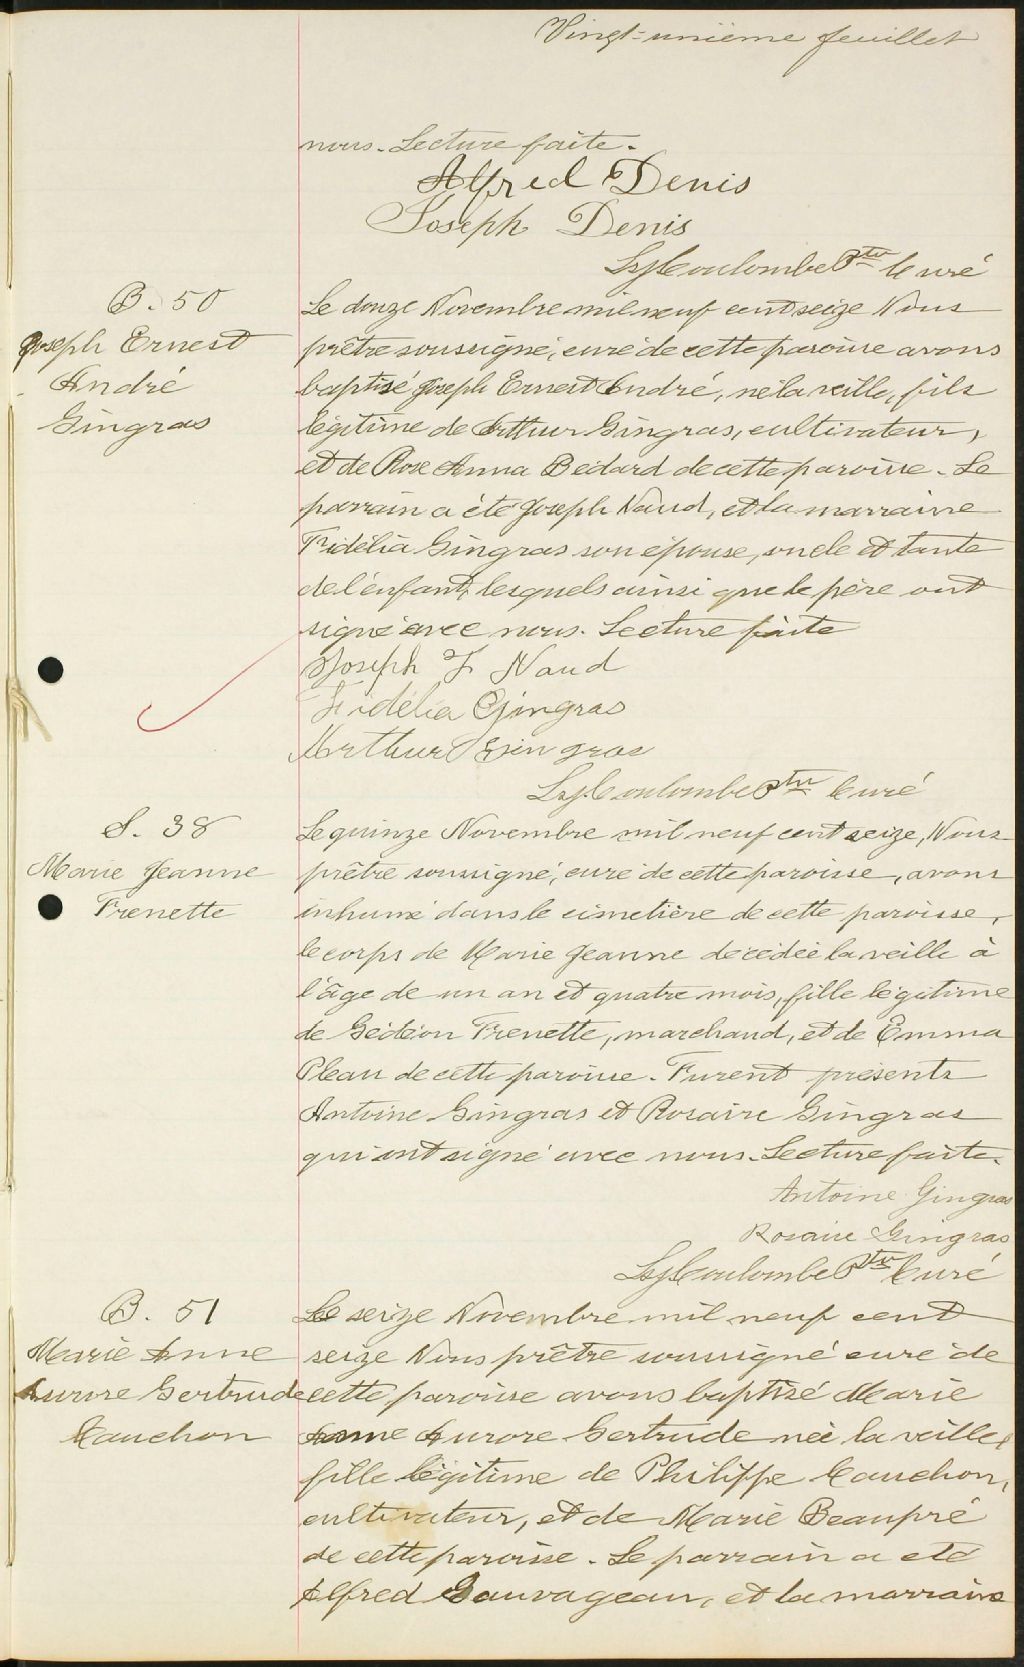 Vingt-unième feuillet
nous. Lecture faite.
Alfred Denis
Joseph Denis
Coulombe Ptre Curé
B. 50
Joseph Ernest
André
Gingras
Le douze Novembre mil neuf cent seize Nous
prêtre soussigné, curé de cette paroisse avons
baptisé Joseph Ernest André, né la veille, fils
légitime de Arthur Gingras, cultivateur,
et de Rose Anna Bédard de cette paroisse. Le
parrain a été Joseph Naud, et la marraine
Fridélia Gingras son épouse, oncle et tante
de l'enfant, lesquels ainsi que le père ont
signé avec nous. Lecture faite
Joseph F Naud
Fidélia Gingras
Arthur Gingras
Coulombe Ptre Curé
S. 38
Marie Jeanne
Frenette
Le quinze Novembre mil neuf cent seize, Nous
prêtre soussigné, curé de cette paroisse, avons
inhumé dans le cimetière de cette paroisse,
le corps de Marie Jeanne décédée la veille à
l'âge de un an et quatre mois, fille légitime
de Gédéon Frenette, marchand, et de Emma
Pleau de cette paroisse. Furent présents
Antoine Gingras et Rosaire Gingras
qui ont signé avec nous. Lecture faite.
Antoine Gingras
Rosaire Gingras
Coulombe Ptre Curé
B. 51
Marie Anne
Aurore Gertrude
Cauchon
Le seize Novembre mil neuf cent
seize Nous prêtre soussigné curé de
cette paroisse avons baptisé Marie
Anne Aurore Gertrude née la veille
fille légitime de Philippe Cauchon,
cultivateur, et de Marie Beaupré
de cette paroisse. Le parrain a été
Alfred Sauvageau, et la marraine